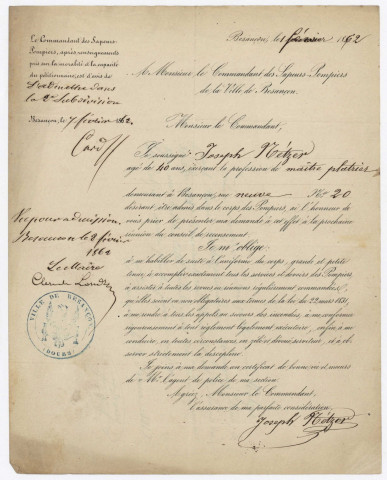 Le Commandant des Sapeurs-
Pompiers, après renseignements
pris sur la moralité et la capacité
du pétitionnaire, est d'avis de
l'admettre dans
la 2e Subdivision
Besançon, le 7 février 62.
Besançon, le 1 février 1862
A Monsieur le Commandant des Sapeurs-Pompiers
de la Ville de Besançon.
Monsieur le Commandant,
Je soussigné Joseph Nétzer
âgé de 40 ans, exerçant la profession de maître plâtrier
demeurant à Besançon, rue neuve No 20
désirant être admis dans le corps des Pompiers, ai l'honneur de
vous prier de présenter ma demande à cet effet à la prochaine
réunion du conseil de recensement.
Je m'oblige
à m'habiller de suite à l'uniforme du corps, grande et petite
tenue, à accomplir exactement tous les services et devoirs des Pompiers,
à assister à toutes les revues ou réunions régulièrement commandées,
qu'elles soient ou non obligatoires aux termes de la loi du 22 mars 1831,
à me rendre à tous les appels au secours des incendies, à me conformer
rigoureusement à tout règlement légalement exécutoire, enfin à me
conduire, en toutes circonstances en planton
Je joins à ma demande un certificat de bonne vie et mœurs
de Mr l'agent de police de ma section
Agréez, Monsieur le Commandant,
l'assurance de ma parfaite considération.
Joseph Nétzer
Vu pour admission.
Besançon le 8 févrir
1862
Le Maire
VILLE DE BESANÇON
(DOUBS)